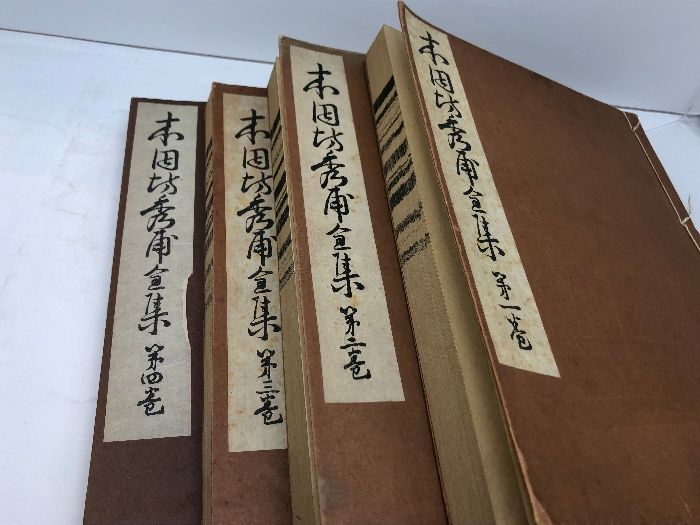 本因坊秀甫全集 第一卷
本因坊秀甫全集 第二卷
本因坊秀甫全集 第三卷
本因坊秀甫全集 第四卷